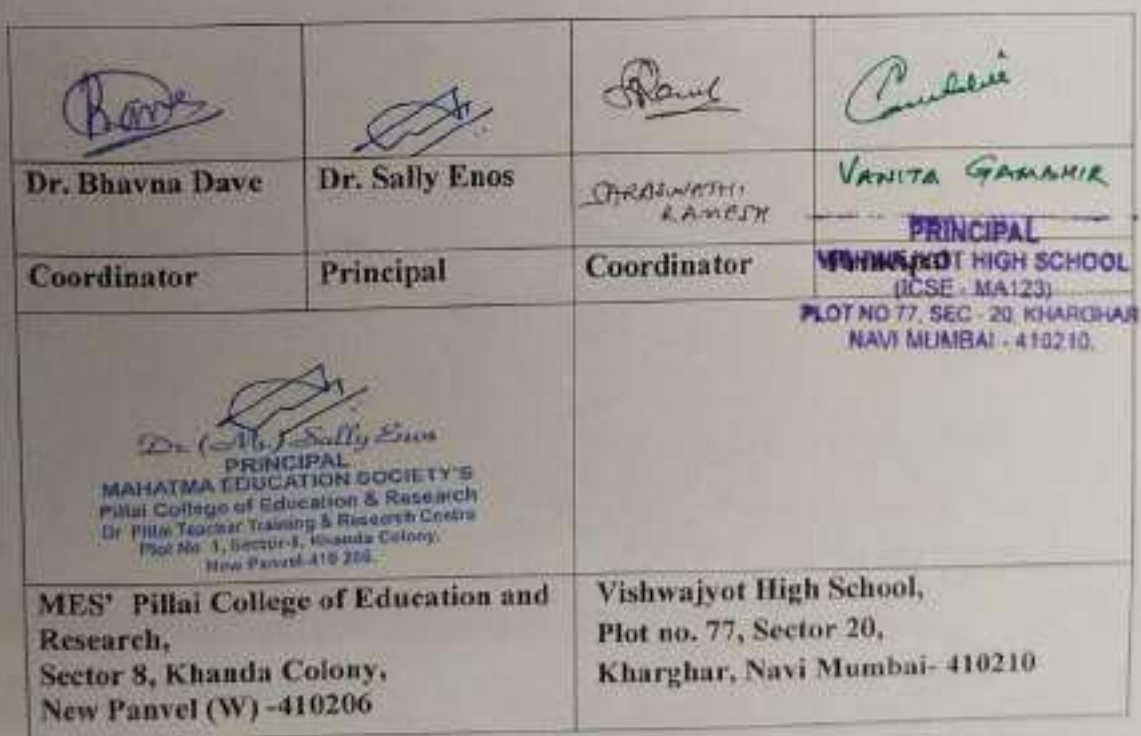 Dr. Bhavna Dave
Dr. Sally Enos
SARASWATHI
RAMESH
VANITA GAMBHIR
Coordinator
Principal
Coordinator
PRINCIPAL
HIGH SCHOOL
(ICSE - MA123)
PLOT NO 77, SEC - 20, KHARGHAR
NAVI MUMBAI - 410210.
Dr. (Mrs.) Sally Enos
PRINCIPAL
MAHATMA EDUCATION SOCIETY'S
Pillai College of Education & Research
Dr. Pillai Teacher Training & Research Centre
Plot No. 1, Sector-8, Khanda Colony,
New Panvel-410 206.
MES' Pillai College of Education and
Research,
Sector 8, Khanda Colony,
New Panvel (W) -410206
Vishwajyot High School,
Plot no. 77, Sector 20,
Kharghar, Navi Mumbai- 410210